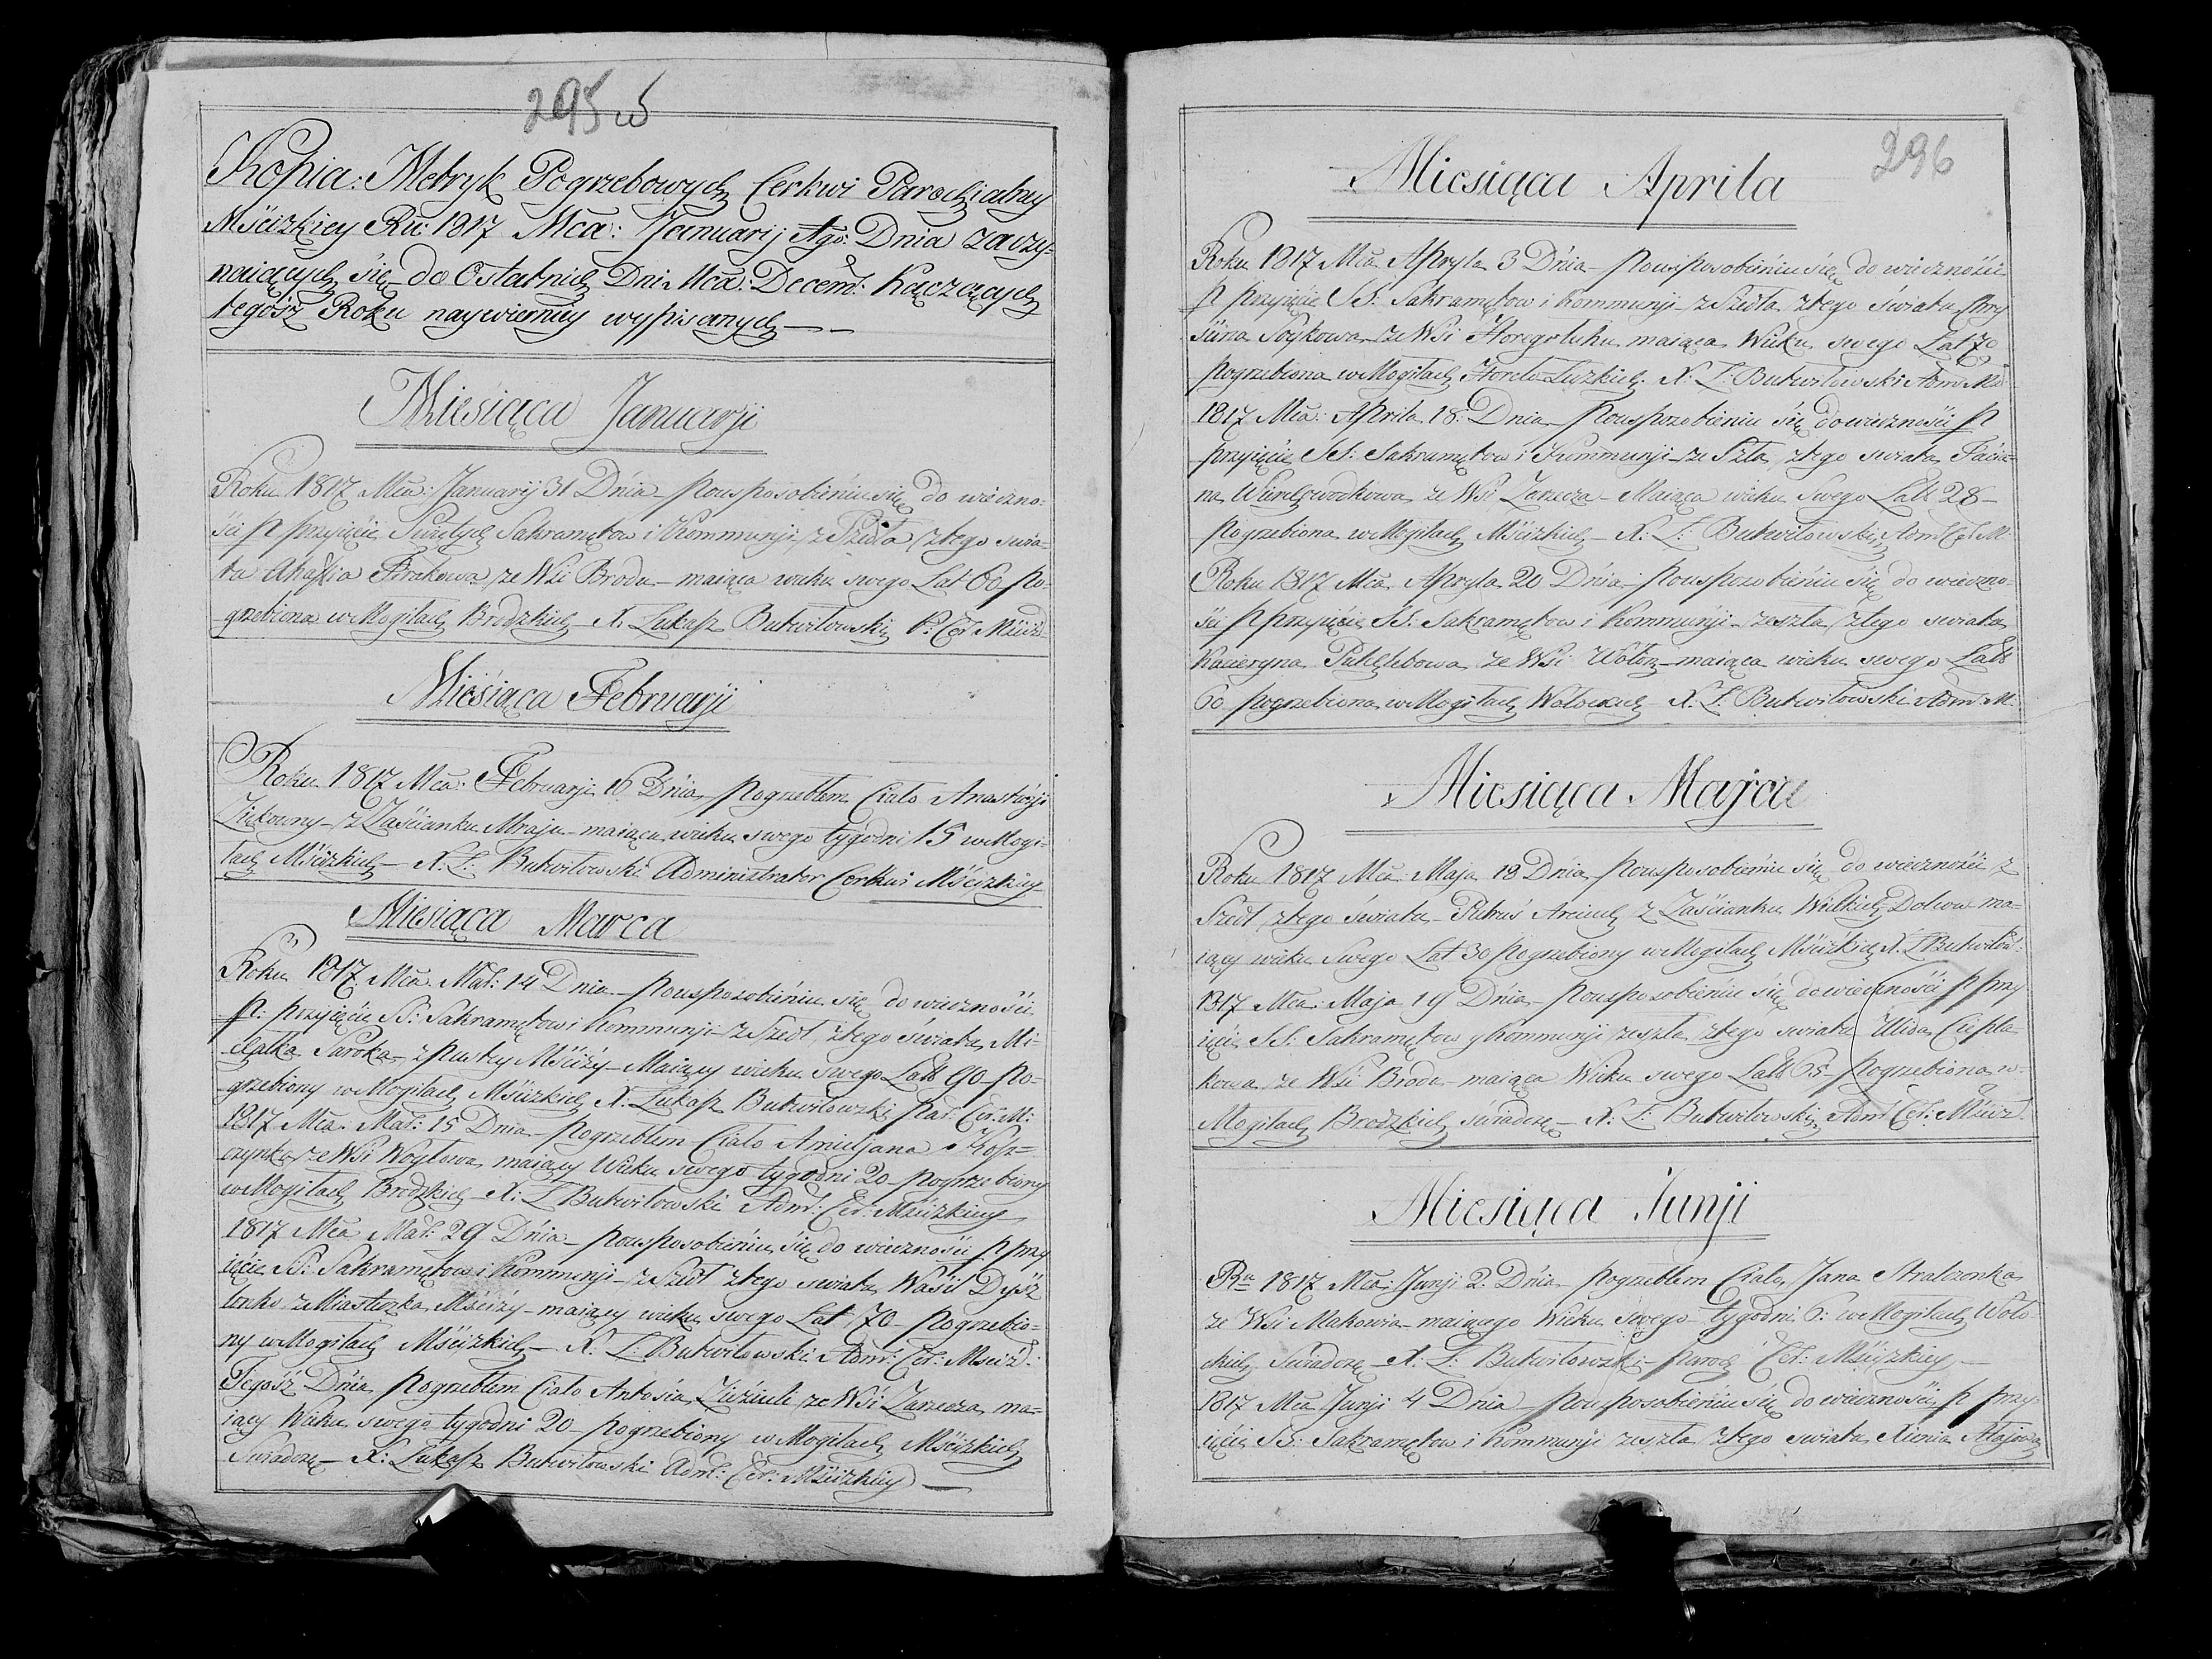 295 w
Kopia: Metryk Pogrzebowych Cerkwi Parochialney
Mścizkiey Ru: 1817 Mca: Januarij Dnia zaczy=
naiących się do Ostatnich Dni Mca: Decem: Kączących
tegósz Roku naywierniey wypisanych
Miesiąca Januarji
Roku 1817 Mca: Januarij 31 Dnia pousposobieniu się do wieczno=
ści p przyięcie Swiętych Sakramętow i Kommunji zSzedła ztego swia=
ta Ahafia Firakowa ze Wsi Brodu maiąca wieku swego Lat 60 po=
grzebiona w Mogiłach Brodzkich X. Łukasz Butwiłowski P: Cer: Mściz
Miesiąca Februarji
Roku 1817 Mca: Februarji 16 Dnia Pogrzebłem Ciało Anastazji
z Zaścianku Mraju maiąca wieku swego tygodni 15 w Mogi=
łach Mścizkich X: Ł: Butwiłowski Administrator Cerkwi Mścizkiey
Miesiąca Marca
Roku 1817 Mca Mar: 14 Dnia pousposobieniu się do wieczności
p: przyięcie SS: Sakramętow i Kommunji zSzedł ztego świata Mi=
Saroka zpustey Mściży Maiący wieku swego Latt 90 Po=
grzebiony w Mogiłach Mścizkich X. Łukasz Butwiłowski Par: Cer: M:
1817 Mca: Mar: 15 Dnia pogrzebłem Ciało Amieljana Kosz=
czynka ze Wsi Woyłowa maiący Wieku swego tygodni 20 pogrzebiony
w Mogiłach Brodzkich X: Ł Butwiłowski Adm: Cer: Mścizkiey
1817 Mca Mar: 29 Dnia pousposobieniu się do wieczności p przy
ięcie SS: Sakramętow i Kommunji zSzedł ztego swiata Wasil
ze Miasteczka Mściży maiący wieku swego Lat 70 pogrzebio=
ny w Mogiłach Mścizkich X. Ł: Butwiłowski Adm: Cer: Mściz:
Tegósz Dnia pogrzebłem Ciało Antosia Zieziuli ze Wsi Zarecza ma=
iący Wieku swego tygodni 20 pogrzebiony w Mogiłach Mścizkich
Swiadczę X: Łukasz Butwiłowski Adm: Cer: Mścizkiey
296
Miesiąca Aprila
Roku 1817 Mca Apryla 3 Dnia pousposobieniu się do wieczności
p przyięcie SS: Sakramętow i Kommunji zSzedła ztego świata Chry
stina Soykowa ze Wsi maiąca Wieku swego Lat 70
pogrzebiona w Mogiłach X: Ł: Butwiłowski Adm: Mś
1817 Mca: Aprila 18: Dnia pousposobieniu się do wieczności p
przyięcie SS: Sakramętow i Kommunji ze Szła ztego swiata Tacia=
na ze Wsi Zarecza Maiąca wieku Swego Latt 28
pogrzebiona w Mogiłach Mścizkich X: Ł: Butwiłowski Adm: Cer: M:
Roku 1817 Mca Apryla 20 Dnia pousposobieniu się do wieczno=
ści p przyięcie SS: Sakramętow i Kommunji zeszła ztego swiata
Kacieryna ze Wsi Wołocz maiąca wieku swego Latt
60 pogrzebiona w Mogiłach X. Ł: Butwiłowski Adm: M:
Miesiąca Maja
Roku 1817 Mca: Maja 18 Dnia pousposobieniu się do wieczności z
Szedł ztego świata Piotruś Arciuch z Zaścianku Wielkich Dolcow ma=
iący wieku Swego Lat 30 pogrzebiony w Mogiłach Mścizkich X. Ł Butwiłow:
1817 Mca: Maja 19 Dnia pousposobieniu się do wieczności p przy
ięcie SS: Sakramętow y Kommunji zeszła ztego swiata Ulida Ciepla=
kowa ze Wsi Brodu maiąca Wieku swego Latt 65 Pogrzebiona w
Mogiłach Brodzkich świadczę X: Ł: Butwiłowski Adm: Cer: Mściz
Miesiąca Junji
Ru 1817 Mca: Junji 2. Dnia Pogrzebłem Ciało Jana Stralczonka
ze Wsi Makowia maiącego Wieku swego tygodni 6: w Mogiłach Woło=
ckich Świadczę X: Ł: Butwiłowski Paroch Cer: Mścizkiey
1817 Mca Junji 4 Dnia pousposobieniu się do wieczności p przy=
ięcie SS: Sakramętow i Kommunji zeszła ztego swiata Xienia